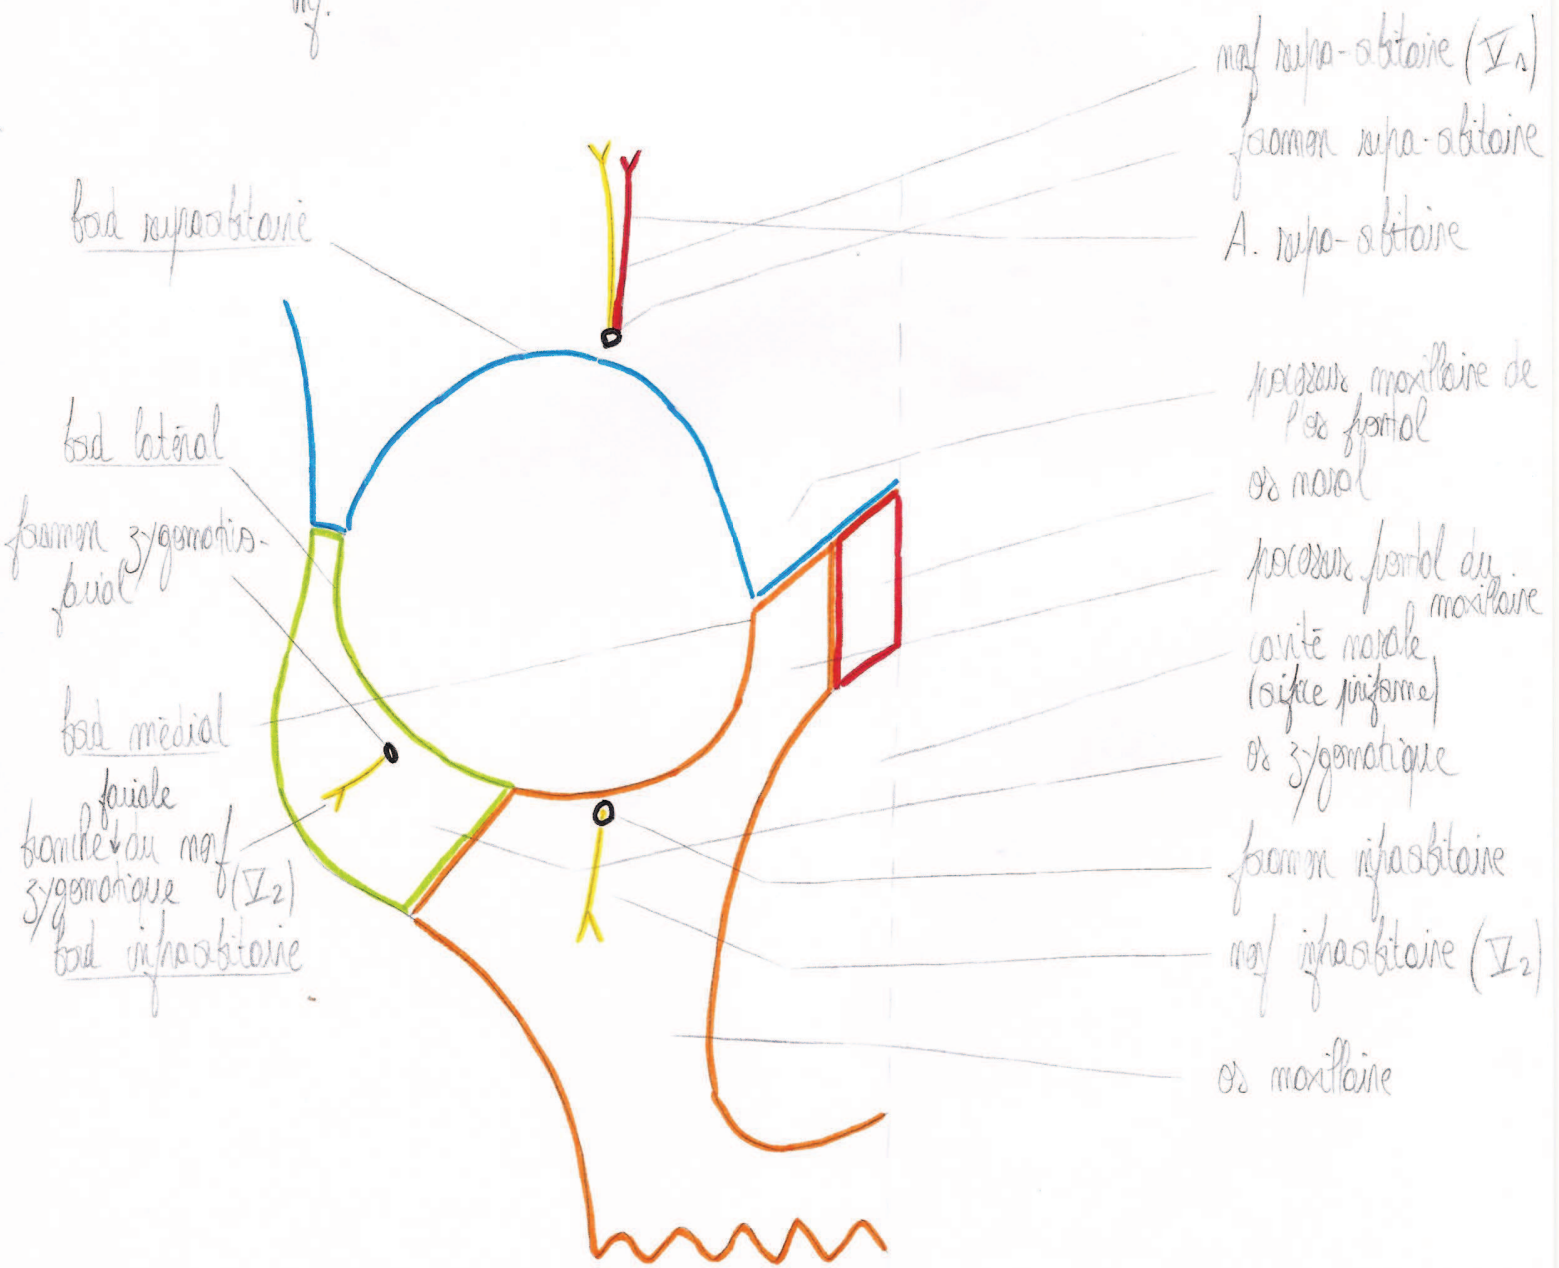 inf.
bord supraorbitaire
bord latéral
foramen zygomatico-
facial
bord médial
faciale
branche ↓ du nerf
zygomatique (V2)
bord infraorbitaire
nerf supra-orbitaire (V1)
foramen supra-orbitaire
A. supra-orbitaire
processus maxillaire de
l'os frontal
os nasal
processus frontal du
maxillaire
cavité nasale
(orifice piriforme)
os zygomatique
foramen infraorbitaire
nerf infraorbitaire (V2)
os maxillaire